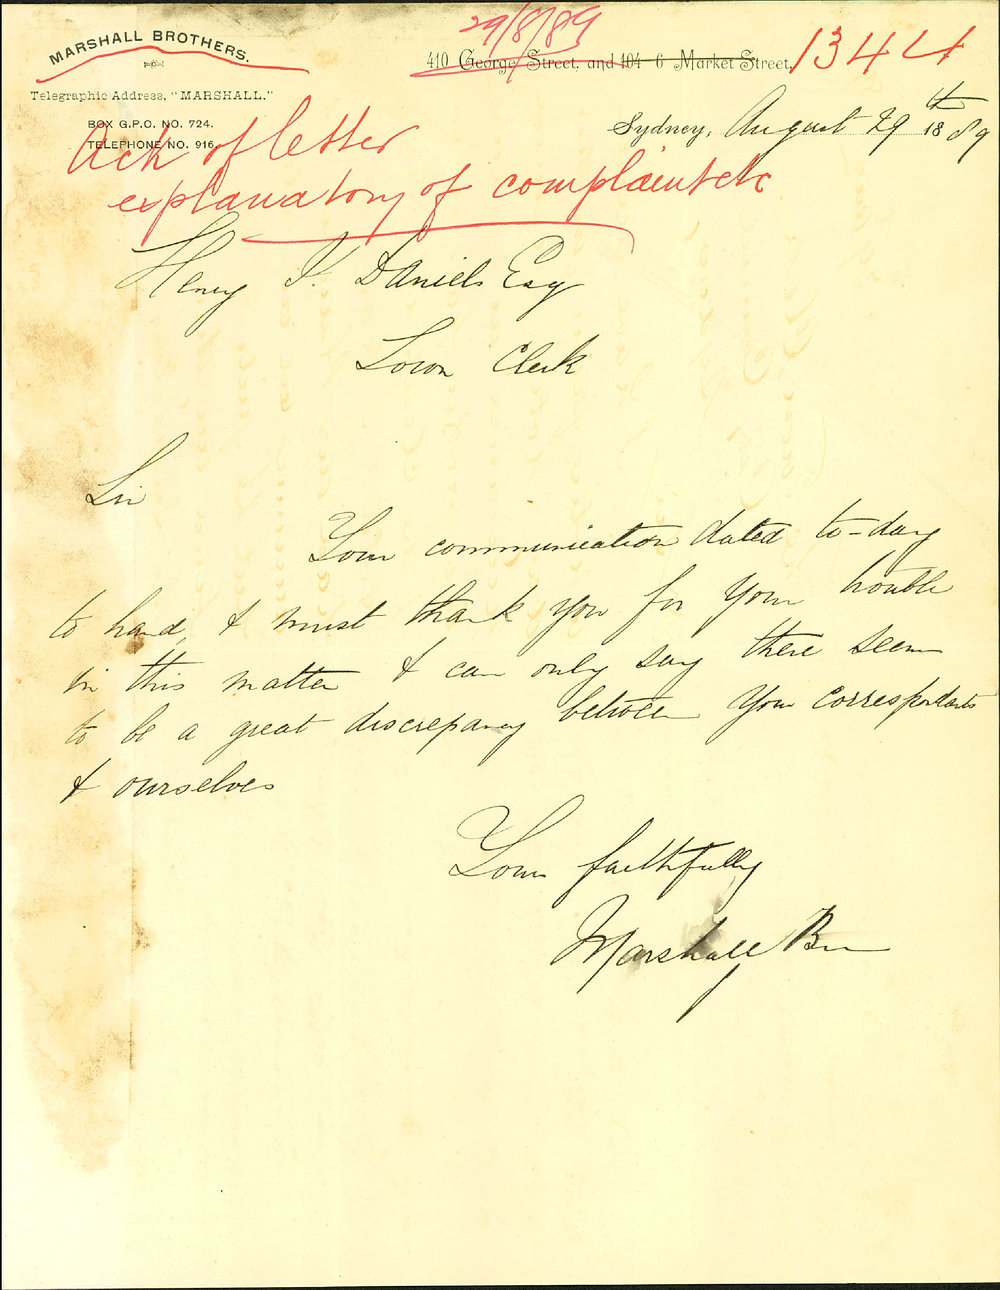 29/8/89
MARSHALL BROTHERS.
410 George Street, and 104-6 Market Street,
1344
Telegraphic Address, "MARSHALL."
Sydney, August 29th 1889
BOX G.P.O. NO. 724.
TELEPHONE NO. 916.
Ack of letter
explanatory of complaint etc
Henry J. Daniels Esq
Town Clerk
Sir
Your communication dated to-day
to hand, & must thank you for your trouble
in this matter & can only say there seem
to be a great discrepancy between your correspondents
& ourselves
Yours faithfully
Marshall Bros